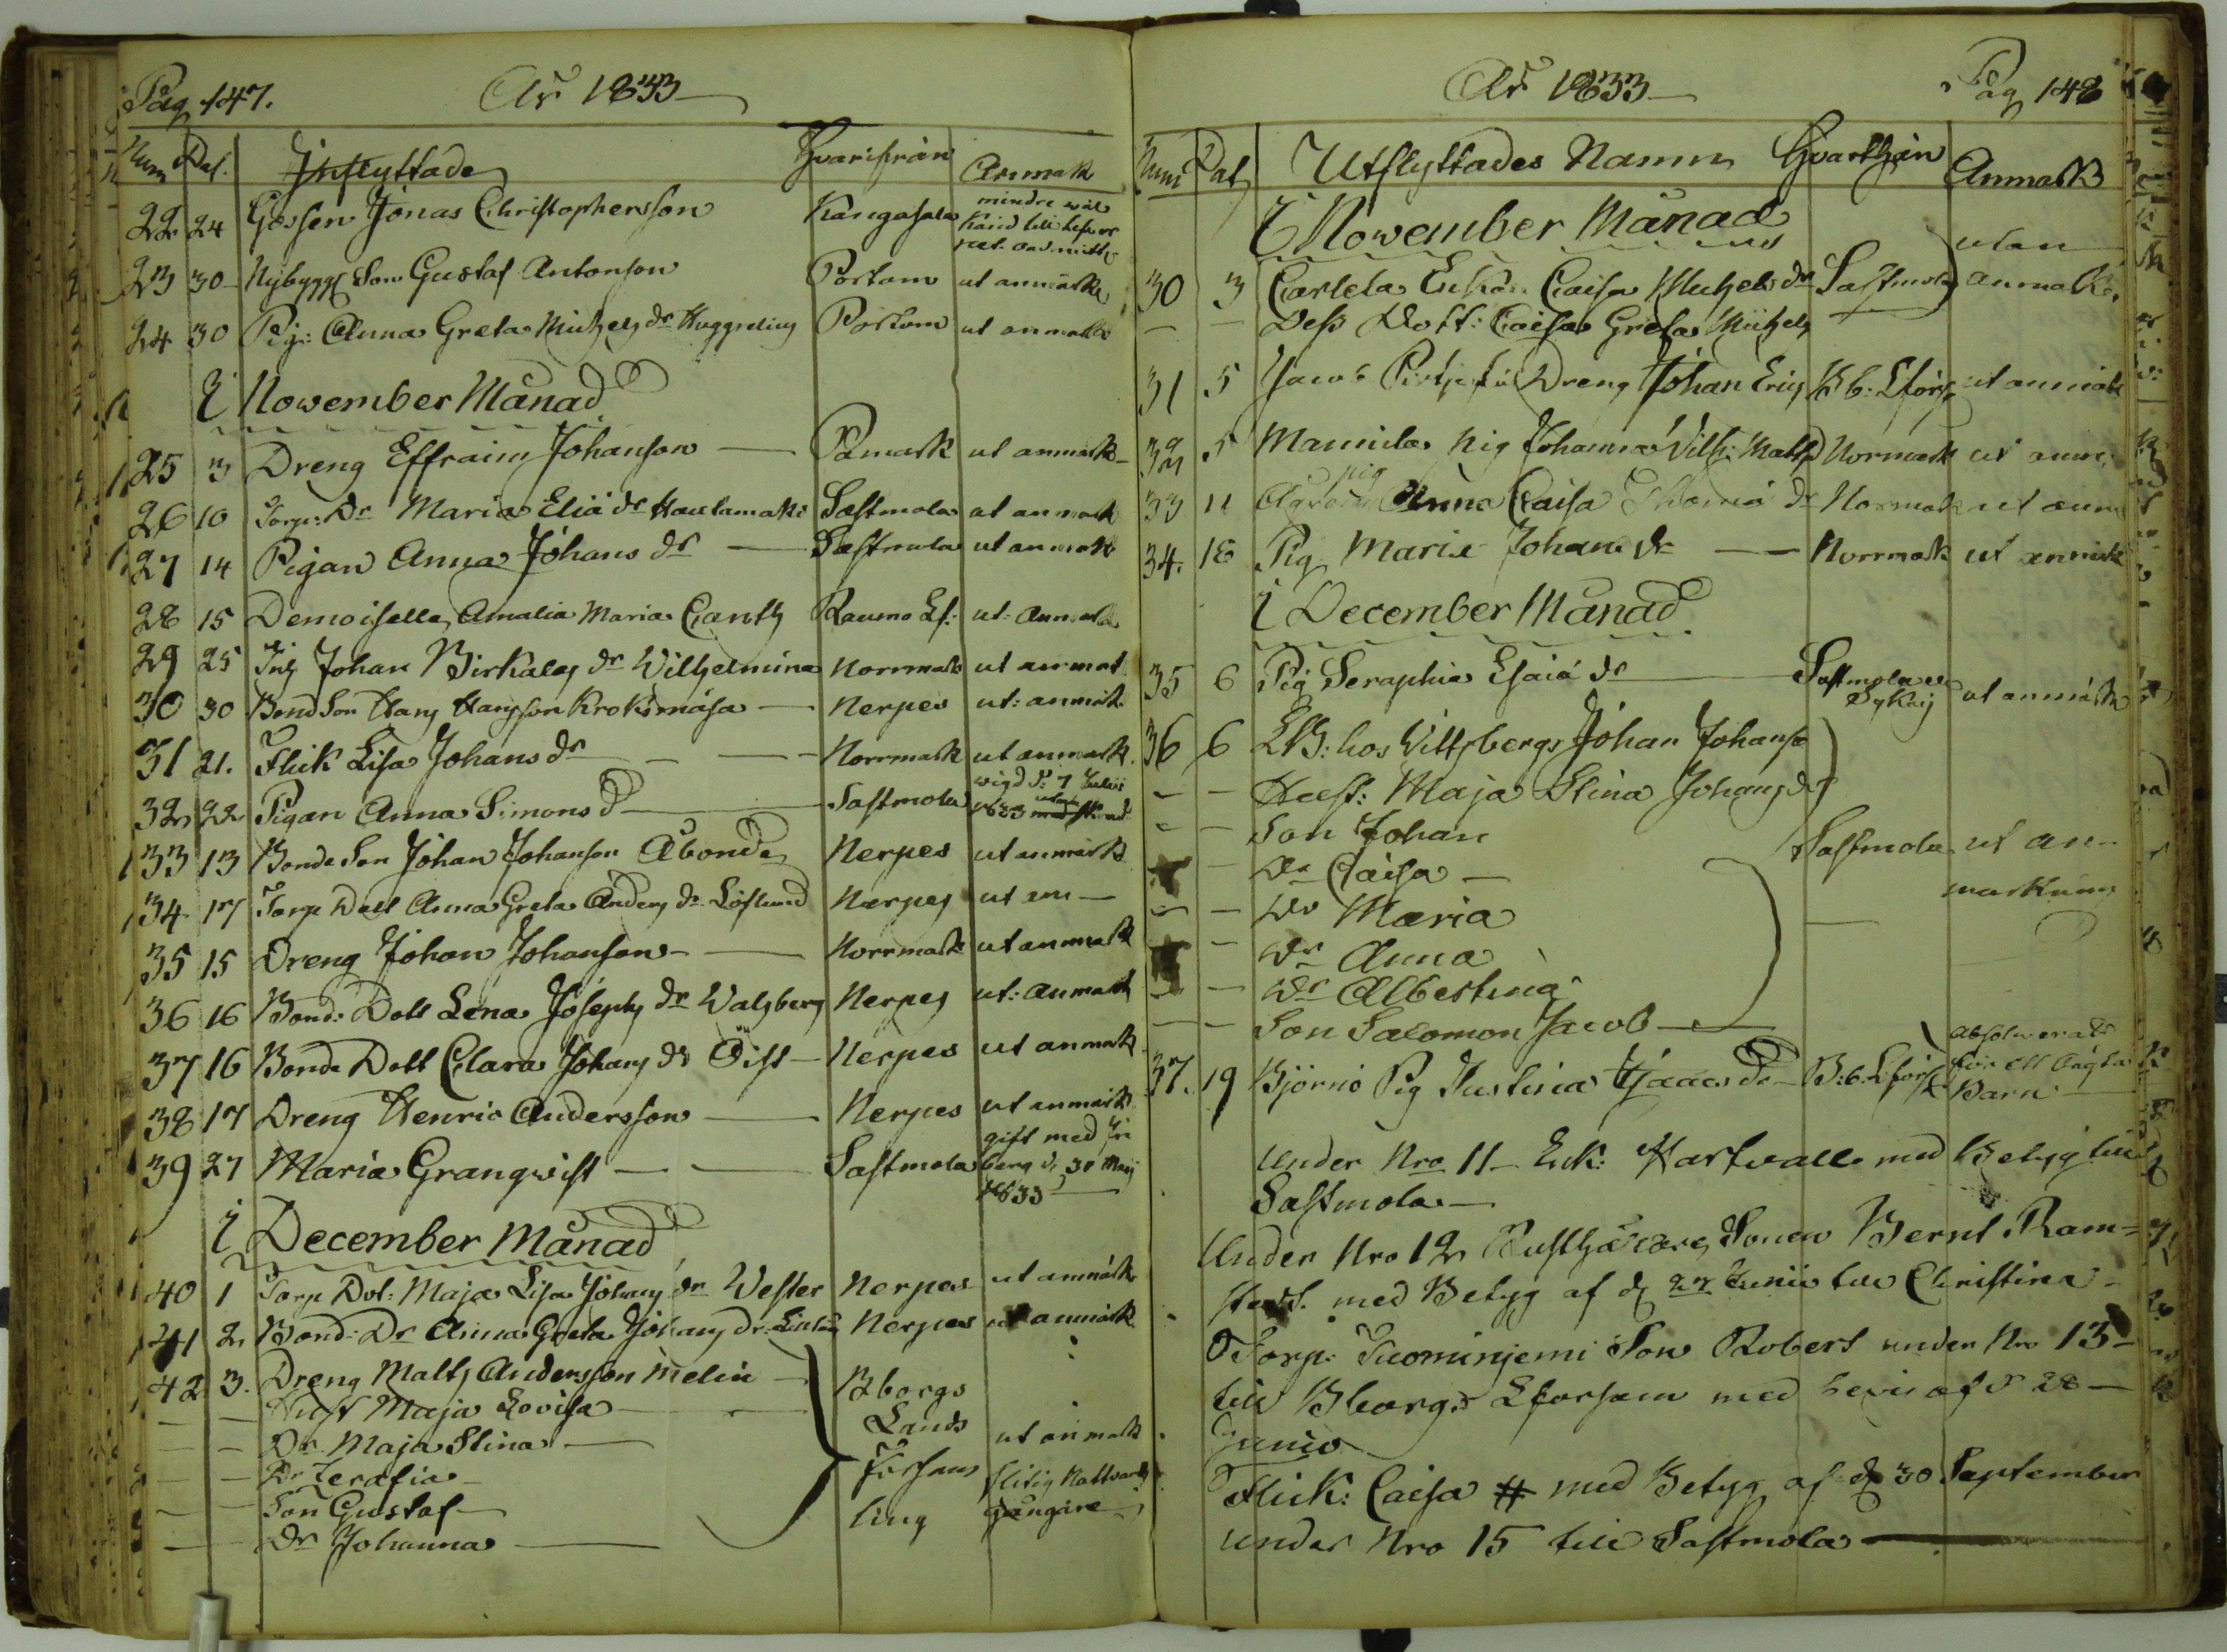 Pag 147.
År 1833
Num Dat. Inflyttade Hvarifrån Anmärk
22 24 Gossen Jonas Christophersson Kangasala mindre wäl
känd till
23 30 Nybygg Son Gustaf Antonson Pörtom ut anmärk
24 30 Pig: Anna Greta Michels dr Pörtom ut anmärk
I November Månad
25 3 Dreng Effraim Johanson — Påmark ut anmärk
26 10 Torp: Dr Maria Eliä dr Hautamaki Sastmola ut anmärk
27 14 Pigan Anna Johans dr — Sastmola ut anmärk
28 15 Demoiselle Amalia Maria Canth Raumo Lf: ut: Anmärk
29 25 Inh Johan Birkalas dr Wilhelmina Norrmark ut anmärk
30 30 Bond Son Hans Hansson Kroksmäsa — Nerpes ut: anmärk
31 21. Flick Lisa Johans dr — Norrmark ut anmärk.
wigd d: 7 Julii
32 22 Pigan Anna Simons d — Sastmola 1833
33 13 Bonde Son Johan Johanson Åbonde Nerpes ut anmärk
34 17 Torp Dott Anna Greta Anders dr Löflund Nerpes ut an —
35 15 Dreng Johan Johanson — Norrmark ut anmärk
36 16 Bond: Dott Lena Josephs dr Walsberg Nerpes ut: anmärk
37 16 Bonde Dott Clara Johans dr Öist — Nerpes ut anmärk
38 17 Dreng Henric Andersson — Nerpes ut anmärk
gift med
39 27 Maria Granqwist — Sastmola berg d. 30 Maij
1833 —
I December Månad
40 1 Torp Dot: Maja Lisa Johans dr Wester Nerpes ut anmärk
41 2 Bond: Dr Anna Greta Johans dr Nerpes ut anmärk
42 3. Dreng Matts Andersson Melin — Bborgs
— — Hust Maja Lovisa — Lands
— — Dr Maja Stina — ut anmärk
— — Dr Serafia — Försam flitig Nattvards
— — Son Gustaf — ling gångare
— — Dr Johanna —
År 1833 —
Pag 148
Num Dat Utflyttades Namn Hvarthän Anmärk
I November Månad
30 3 Carlela Enkan Caisa Michels dr Sastmola utan anmärk
— — Dess Dott: Caisa Greta Michels
31 5 Jacob Dreng Johan Eric Bb: Lförs ut anmärk
32 5 Mannila Pig Johanna Vilh: Matts Normark ut anm
pig
33 11 Anna Caisa Thomä dr Normark ut anm
34. 18 Pig Maria Johans dr — Norrmark ut anmärk
I December Månad
35 6 Pig Seraphia Esaiä dr — Sastmola ut anmärk
36 6 hos Vittsbergs Johan Johans
— — Hust: Maja Stina Johans dr
— — Son Johan
— — Dr Caisa — Sastmola ut an-
— — Dr Maria märkning
— — Dr Anna
— — Dr Albertina
— — Son Salomon Jacob —
absolverad
37. 19 Björnö Pig Justina Isaacs dr — B:b. Lförs för ett oägta
Barn
under Nro 11 — Enk: Hartvall med Betyg till
Sastmola —
Under Nro 12 Rusthållares Sonen Bernt Ram=
stedt. med Betyg af d 27 Junii till Christina —
Torp: Tuominjemi Son Robert under Nro 13 —
till Bborgs Lforsam med bevis af d 28 —
Junii
Flick: Caisa # med Betyg af d 30 September
under Nro 15 till Sastmola —